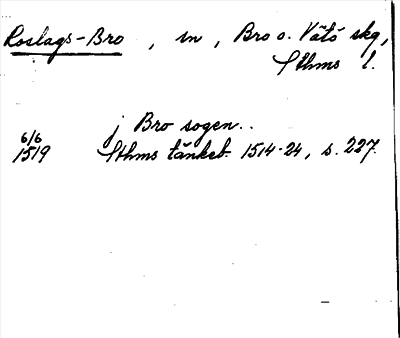 Roslags-Bro, sn, Bro o. Vätö skg,
Sthms l.
j Bro sogen..
6/6
1519 Sthms tänkeb. 1514-24, s. 227.